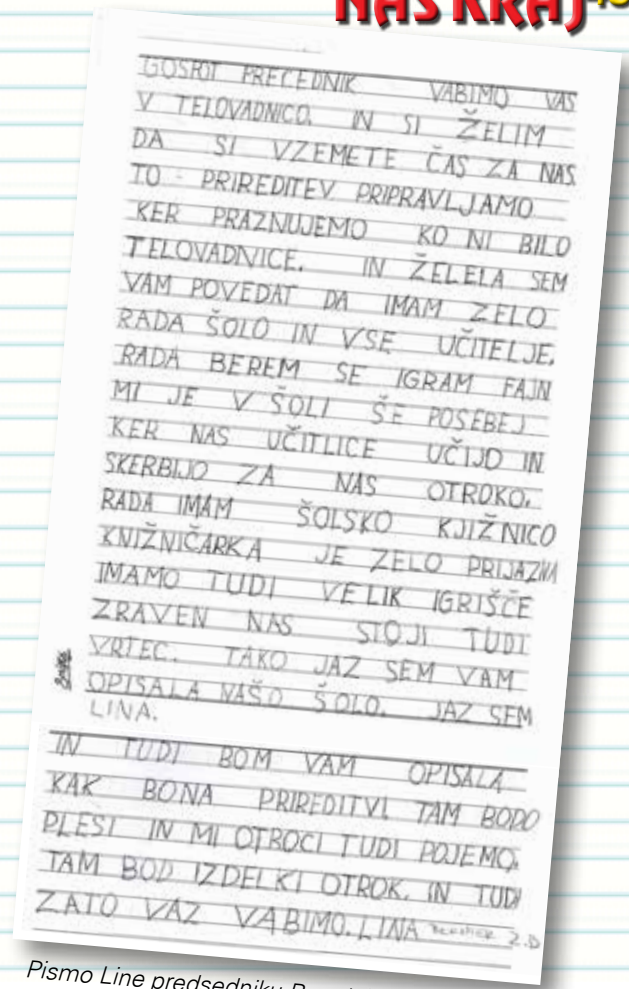 NAŠ KRAJ
GOSPOT PRECEDNIK VABIMO VAS
V TELOVADNICO. IN SI ŽELIM
DA SI VZEMETE ČAS ZA NAS
TO PRIREDITEV PRIPRAVLJAMO
KER PRAZNUJEMO KO NI BILO
TELOVADNICE. IN ŽELELA SEM
VAM POVEDAT DA IMAM ZELO
RADA ŠOLO IN VSE UČITELJE.
RADA BEREM SE IGRAM FAJN
MI JE V ŠOLI ŠE POSEBEJ
KER NAS UČITLICE UČIJO IN
SKERBIJO ZA NAS OTROKO.
RADA IMAM ŠOLSKO KJIŽNICO
KNIŽNIČARKA JE ZELO PRIJAZNA
IMAMO TUDI VELIK IGRIŠČE
ZRAVEN NAS STOJI TUDI
VRTEC. TAKO JAZ SEM VAM
OPISALA NAŠO ŠOLO. JAZ SEM
LINA.
IN TUDI BOM VAM OPISALA
KAK BONA PRIREDITVI TAM BODO
PLESI IN MI OTROCI TUDI POJEMO.
TAM BOD IZDELKI OTROK. IN TUDI
ZATO VAZ VABIMO. LINA 2.D
Pismo Line predsedniku